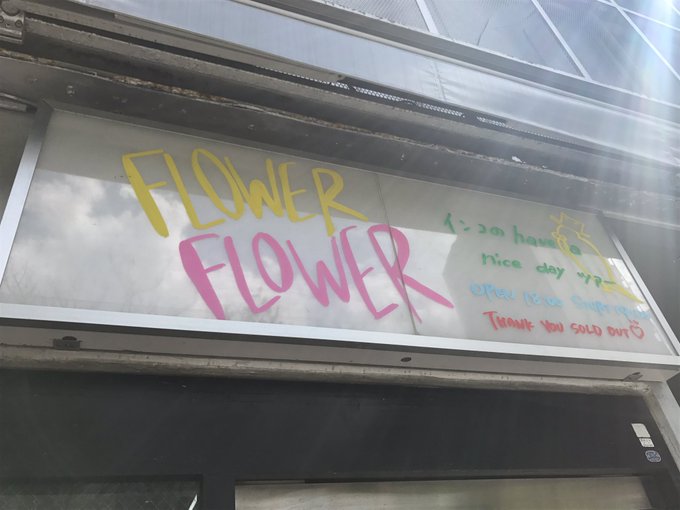 FLOWER
FLOWER
インコの have a
nice day ツアー
OPEN
THANK YOU SOLD OUT